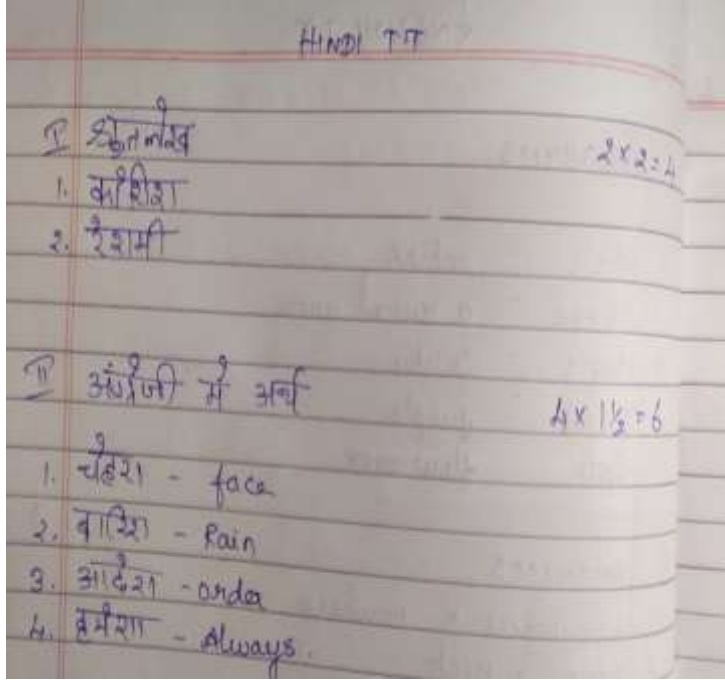 HINDI TT
I श्रुतलेख 2x2=4
1. कोशिश
2. रेशमी
II अंग्रेजी में अर्थ 4x1½=6
1. चेहरा - face
2. बारिश - Rain
3. आदेश - order
4. हमेशा - Always.